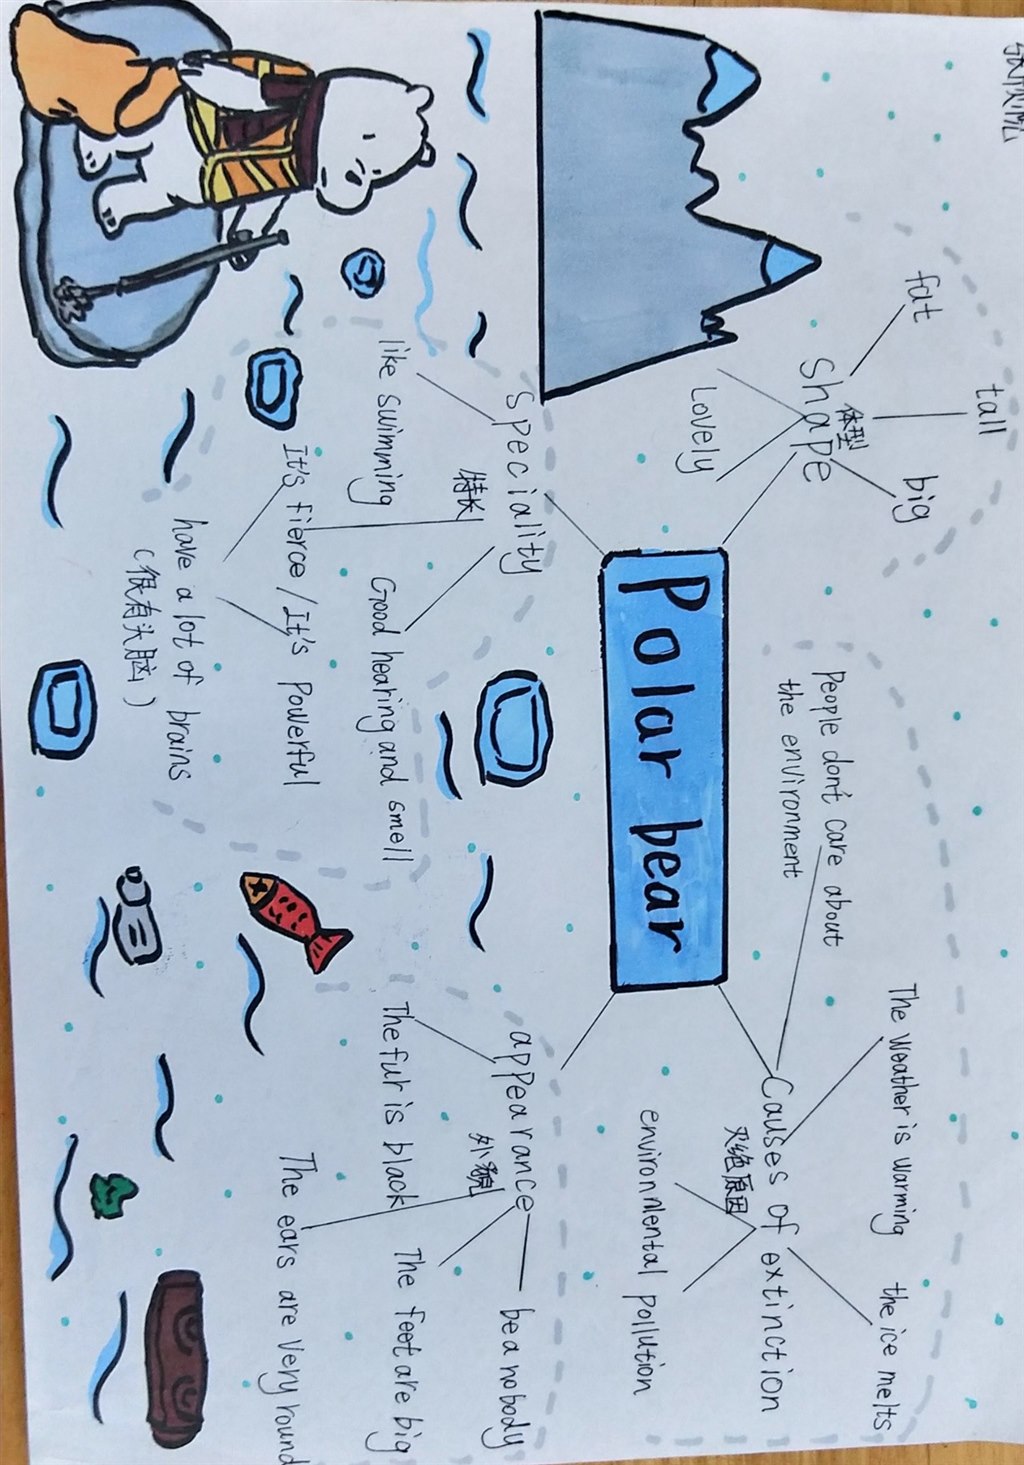 Polar bear
shape
体型
fat
tall
big
Lovely
speciality
特长
like swimming
It's fierce / It's powerful
Good hearing and smell
have a lot of brains
(很有头脑)
Causes of extinction
灭绝原因
people don't care about
the environment
The weather is warming
the ice melts
environmental pollution
appearance
外貌
The fur is black
The ears are very round
The feet are big
bea nobody